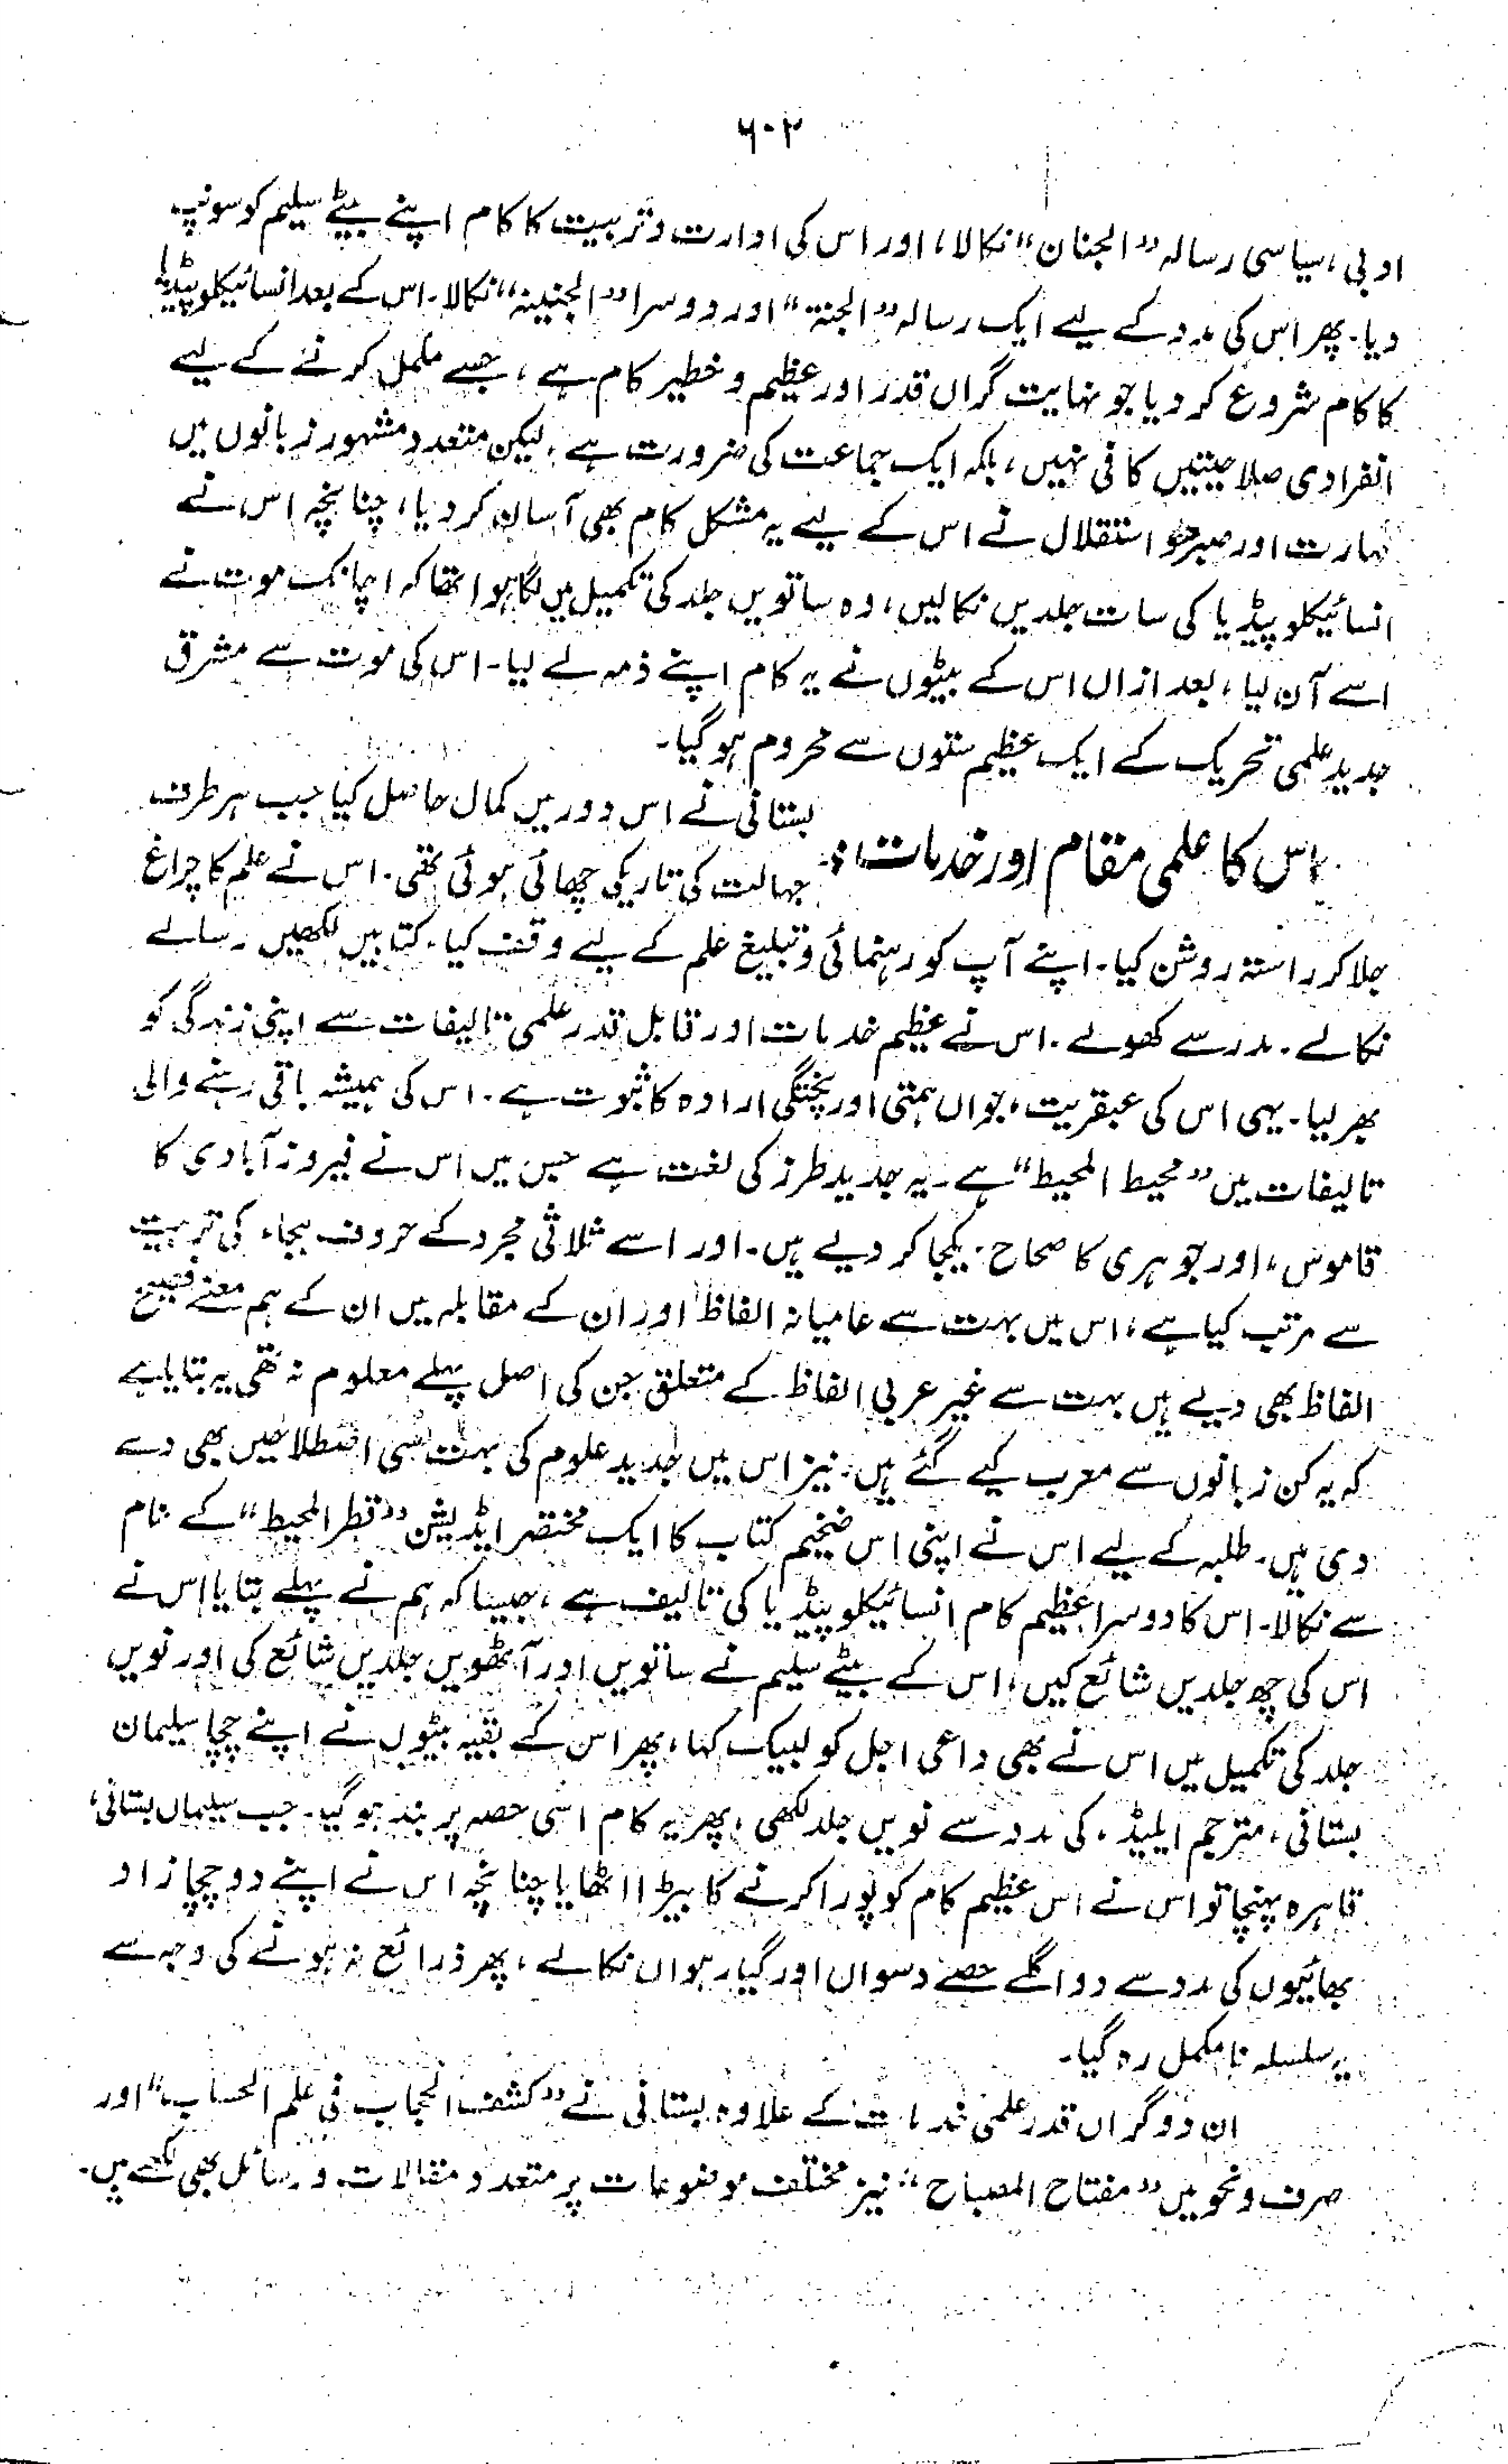 ۶۰۲
ادبی، سیاسی رسالہ "الجنان" نکالا، اور اس کی ادارت و تربیت کا کام اپنے بیٹے سیلیم کو سونپ
دیا۔ پھر اس کی مدد کے لیے ایک رسالہ "الجنۃ" اور دوسرا "الجنینۃ" نکالا۔ اس کے بعد انسائیکلوپیڈیا
کا کام شروع کر دیا جو نہایت گراں قدر اور عظیم و خطیر کام ہے، جسے مکمل کرنے کے لیے
انفرادی صلاحیتیں کافی نہیں، بلکہ ایک جماعت کی ضرورت ہے، لیکن متعدد مشہور زبانوں میں
مہارت اور صبر و استقلال نے اس کے لیے یہ مشکل کام بھی آسان کر دیا، چنانچہ اس نے
انسائیکلوپیڈیا کی سات جلدیں نکالیں، وہ ساتویں جلد کی تکمیل میں لگا ہوا تھا کہ اچانک موت نے
اسے آن لیا، بعد ازاں اس کے بیٹوں نے یہ کام اپنے ذمہ لے لیا۔ اس کی موت سے مشرق
جدید علمی تحریک کے ایک عظیم ستون سے محروم ہو گیا۔
اس کا علمی مقام اور خدمات: بستانی نے اس دور میں کمال حاصل کیا جب ہر طرف
جہالت کی تاریکی چھائی ہوئی تھی۔ اس نے علم کا چراغ
جلا کر راستہ روشن کیا۔ اپنے آپ کو رہنمائی و تبلیغ علم کے لیے وقف کیا، کتابیں لکھیں۔ رسالے
نکالے۔ مدرسے کھولے۔ اس نے عظیم خدمات اور قابل قدر علمی تالیفات سے اپنی زندگی کو
بھر لیا۔ یہی اس کی عبقریت، جواں ہمتی اور پختگی ارادہ کا ثبوت ہے۔ اس کی ہمیشہ باقی رہنے والی
تالیفات میں "محیط المحیط" ہے۔ یہ جدید طرز کی لغت ہے جس میں اس نے فیروز آبادی کا
قاموس، اور جوہری کا صحاح، یکجا کر دیے ہیں۔ اور اسے ثلاثی مجرد کے حروف ہجاء کی ترتیب
سے مرتب کیا ہے، اس میں بہت سے عامیانہ الفاظ اور ان کے مقابلہ میں ان کے ہم معنے فصیح
الفاظ بھی دیے ہیں بہت سے غیر عربی الفاظ کے متعلق جن کی اصل پہلے معلوم نہ تھی یہ بتایا ہے
کہ یہ کن زبانوں سے معرب کیے گئے ہیں۔ نیز اس میں جدید علوم کی بہت سی اصطلاحیں بھی دے
دی ہیں۔ طلبہ کے لیے اس نے اپنی اس ضخیم کتاب کا ایک مختصر ایڈیشن "قطر المحیط" کے نام
سے نکالا۔ اس کا دوسرا عظیم کام انسائیکلوپیڈیا کی تالیف ہے، جیسا کہ ہم نے پہلے بتایا اس نے
اس کی چھ جلدیں شائع کیں، اس کے بیٹے سلیم نے ساتویں اور آٹھویں جلدیں شائع کی اور نویں
جلد کی تکمیل میں اس نے بھی داعی اجل کو لبیک کہا، پھر اس کے بقیہ بیٹوں نے اپنے چچا سیلمان
بستانی، مترجم ایلیڈ، کی مدد سے نویں جلد لکھی، پھر یہ کام اسی حصہ پر بند ہو گیا۔ جب سیلماں بستانی،
قاہرہ پہنچا تو اس نے اس عظیم کام کو پورا کرنے کا بیڑا اٹھایا چنانچہ اس نے اپنے دو چچا زاد
بھائیوں کی مدد سے دو اگلے حصے دسواں اور گیارہواں نکالے، پھر ذرائع نہ ہونے کی وجہ سے
یہ سلسلہ نامکمل رہ گیا۔
ان دو گراں قدر علمی خدمات کے علاوہ بستانی نے "کشف الحجاب فی علم الحساب" اور
صرف و نحو میں "مفتاح المصباح" نیز مختلف موضوعات پر متعدد مقالات و رسائل بھی لکھے ہیں۔